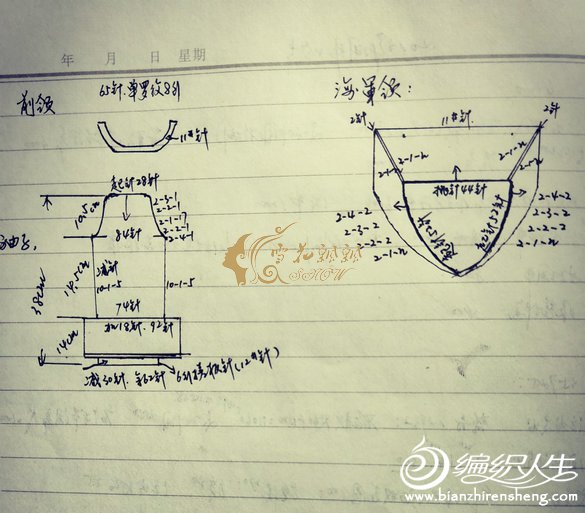 年 月 日 星期
前领
65针.单罗纹8行
11#针
海军领:
2针
11#针
2针
2-1-n
2-1-n
挑针44针
挑针52针
2-4-2
2-3-2
2-2-2
2-1-n
2-4-2
2-3-2
2-2-2
2-1-n
起针28针
2-3-1
2-2-1
2-1-17
2-2-1
2-4-1
10.5cm
84针
14.5cm
38cm
减针
10-1-5
10-1-5
74针
加18针.92针
14cm
减30针.余62针
6行搓板针(12#针)
雪儿妙妙
SHOW
编织人生
www.bianzhirensheng.com